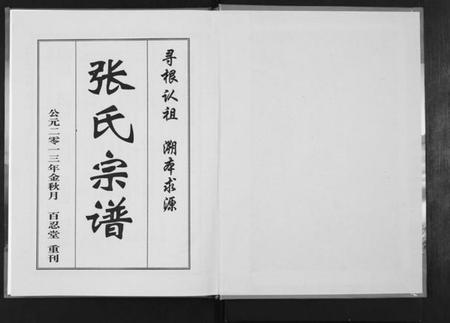 寻根认祖 溯本求源
张氏宗谱
公元二零一三年金秋月 百忍堂 重刊